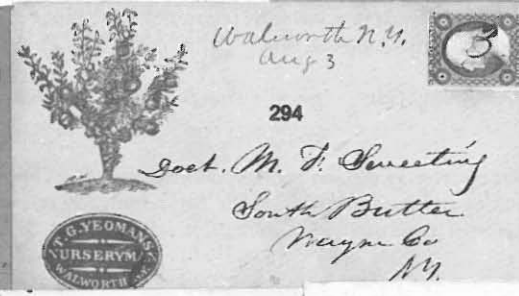 Walworth N.Y.
Aug 3
3
294
Doct. M. F. Sweeting
South Butler
Wayne Co
N.Y.
T. G. YEOMANS
NURSERYM
WALWORTH